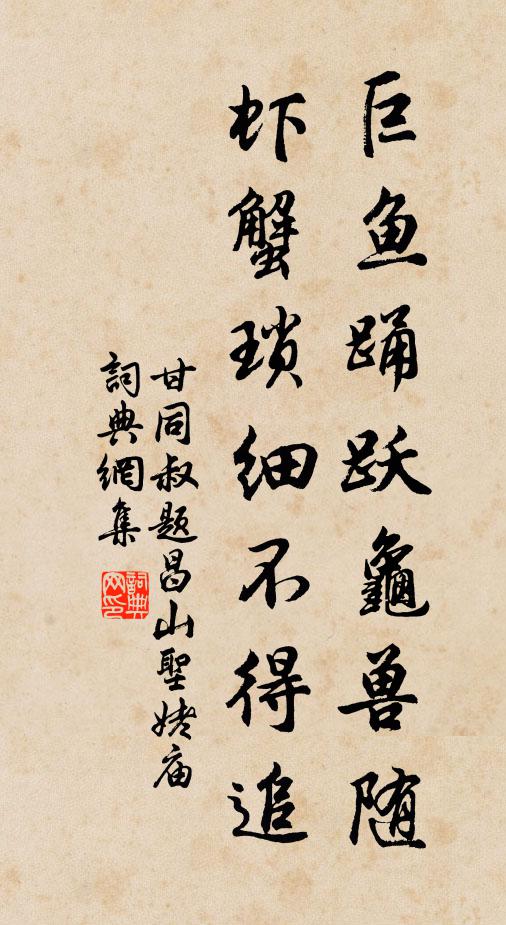 巨鱼踊跃龜兽随
虾蟹琐细不得追
甘同叔题昌山聖姥庙
詞典網集
詞典网印